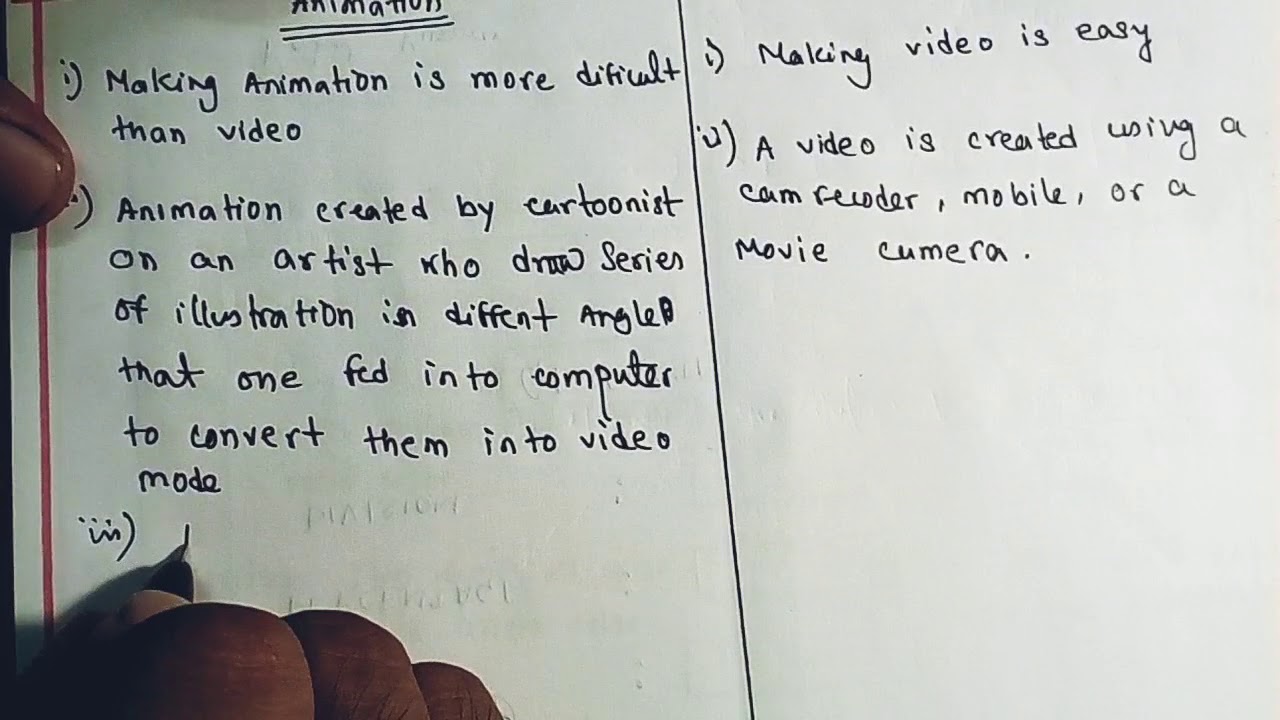 Animation
i) Making Animation is more dificult
than video
) Animation created by cartoonist
on an artist who draw Series
of illustration in diffent Angle
that one fed into computer
to convert them into video
mode
iii)
i) Making video is easy
ii) A video is created using a
camrecoder, mobile, or a
Movie cumera.